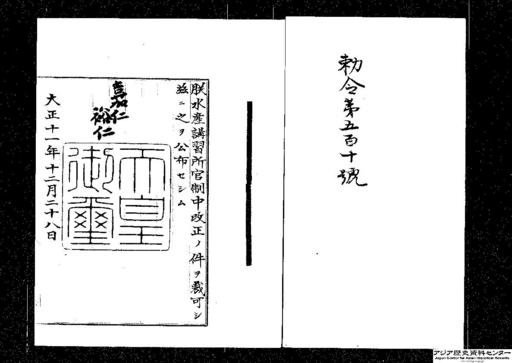 勅令第五百十號
朕水産講習所官制中改正ノ件ヲ裁可シ
茲ニ之ヲ公布セシム
嘉仁
裕仁
天皇
御璽
大正十一年十二月二十八日
アジア歴史資料センター
Japan Center for Asian Historical Records